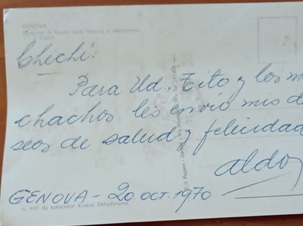 GENOVA
Chechi:
Para Ud. Tito y los m
chachos les envío mis d
seos de salud y felicidad
Aldo
GENOVA - 20 OCT. 1970